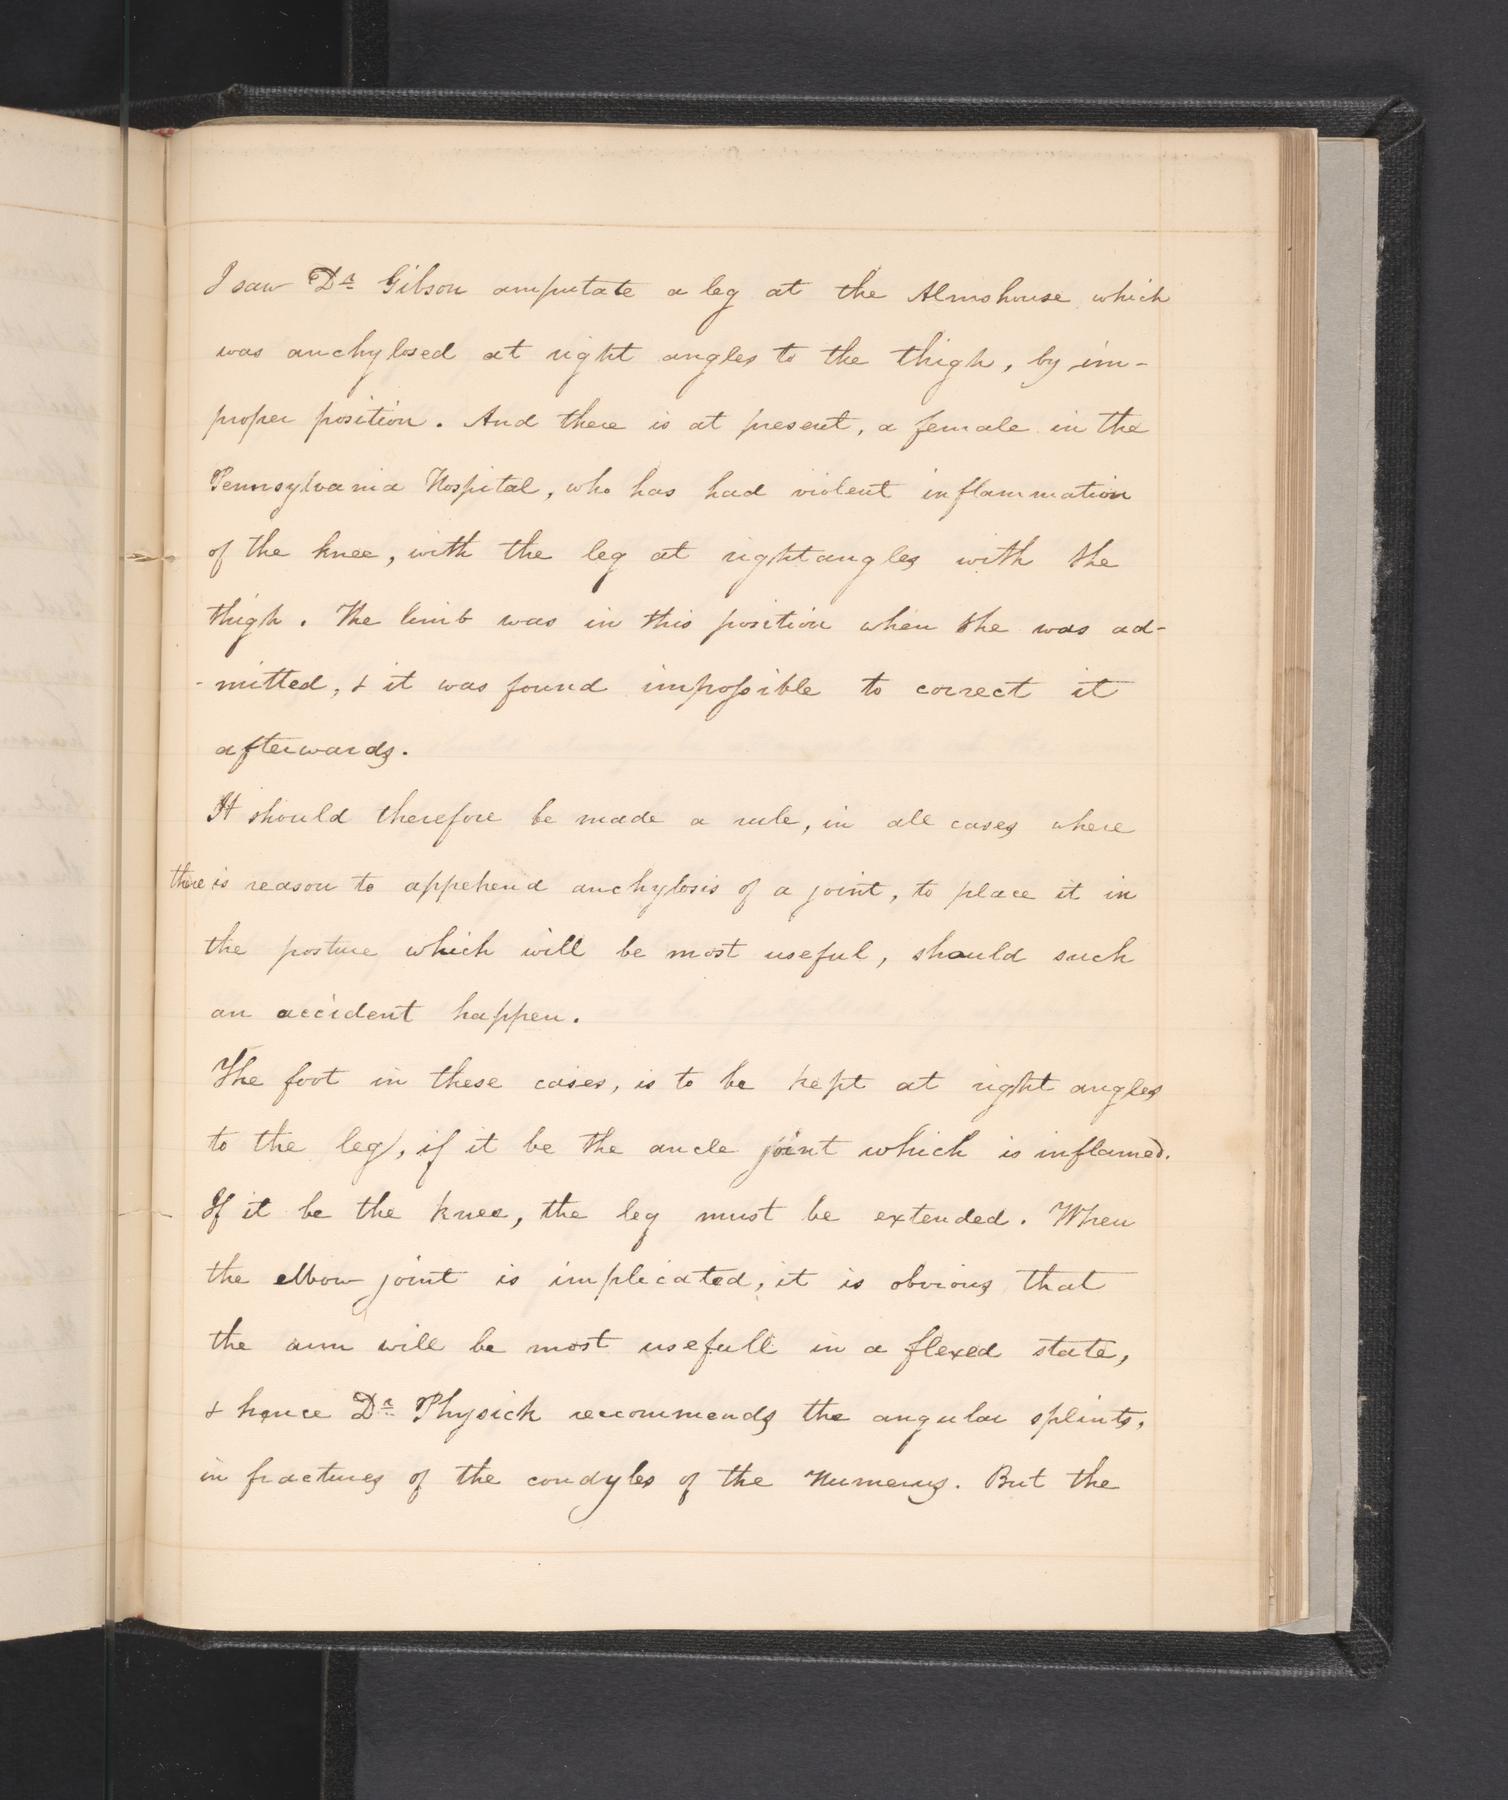 I saw Dr. Gibson amputate a leg at the Almshouse which
was anchylosed at right angles to the thigh, by im-
proper position. And there is at present, a female in the
Pennsylvania Hospital, who has had violent inflammation
of the knee, with the leg at rightangles with the
thigh. The limb was in this position when she was ad-
-mitted, & it was found impossible to correct it
afterwards.
It should therefore be made a rule, in all cases where
there is reason to appehend anchylosis of a joint, to place it in
the posture which will be most useful, should such
an accident happen.
The foot in these cases, is to be kept at right angles
to the leg, if it be the ancle joint which is inflamed.
If it be the knee, the leg must be extended. When
the elbow joint is implicated, it is obvious that
the arm will be most usefull in a flexed state,
& hence Dr. Physick reccommends the angular splints,
in fractures of the condyles of the Humerus. But the